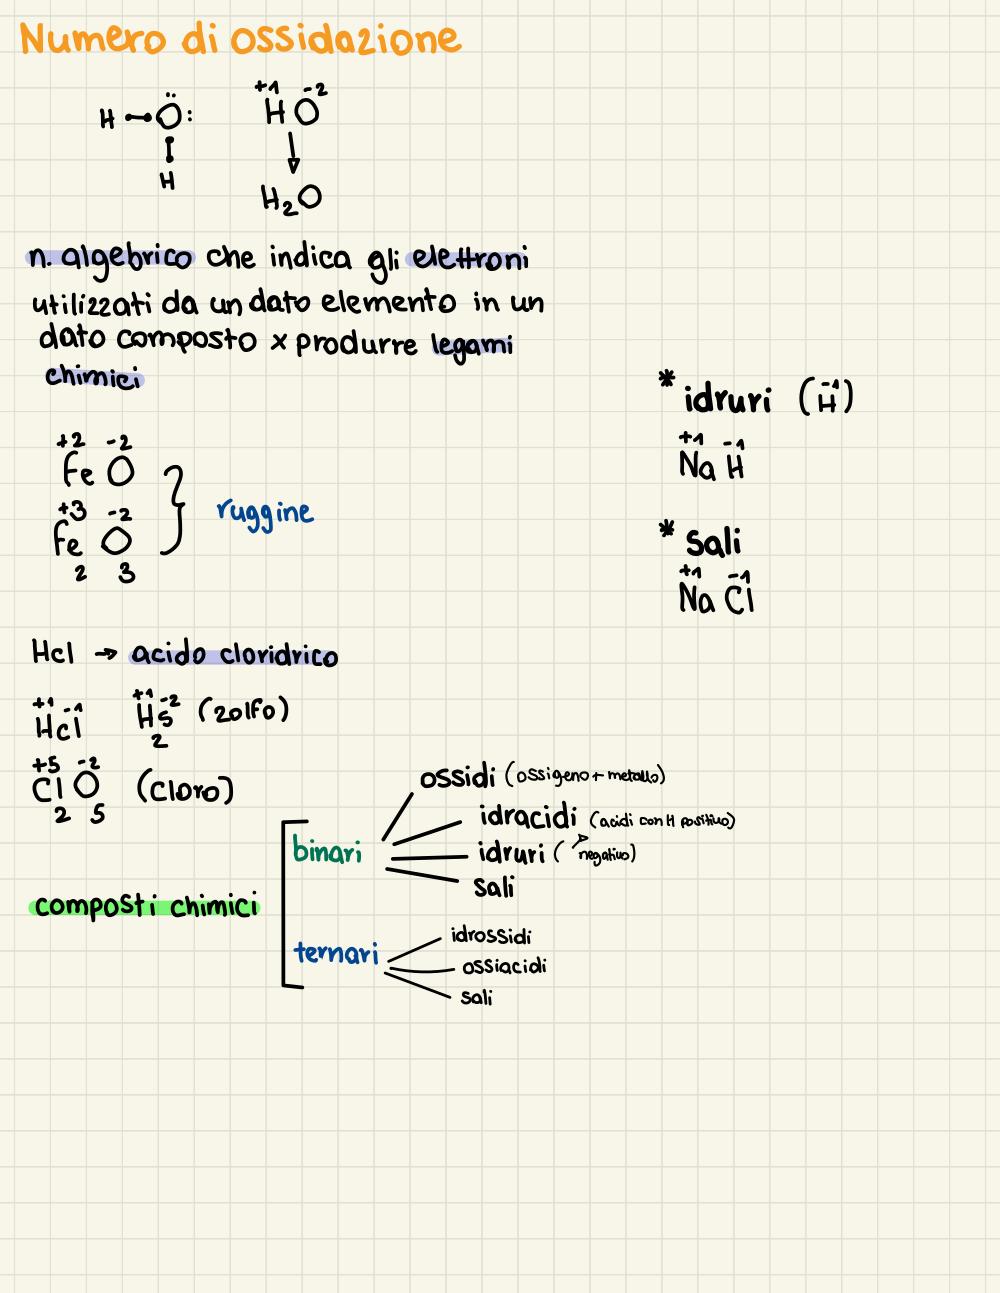 Numero di ossidazione
H Ö:
H
+1 -2
H O
H₂O
n. algebrico che indica gli elettroni
utilizzati da un dato elemento in un
dato composto x produrre legami
chimici
* idruri (H⁻¹)
+1 -1
Na H
+2 -2
Fe O
+3 -2
Fe O
2 3
ruggine
* sali
+1 -1
Na Cl
Hcl → acido cloridrico
+1 -1
Hcl
+1 -2
HS (zolfo)
2
+5 -2
Cl O (cloro)
2 5
composti chimici
binari
ossidi (ossigeno + metallo)
idracidi (acidi con H positivo)
idruri ( negativo)
sali
ternari
idrossidi
ossiacidi
sali